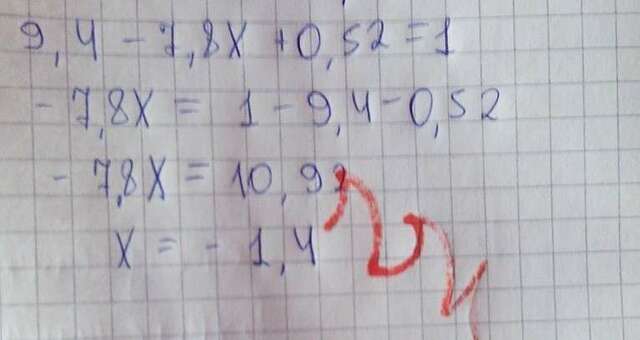 9,4 - 7,8x + 0,52 = 1
- 7,8x = 1 - 9,4 - 0,52
- 7,8x = 10,92
x = - 1,4